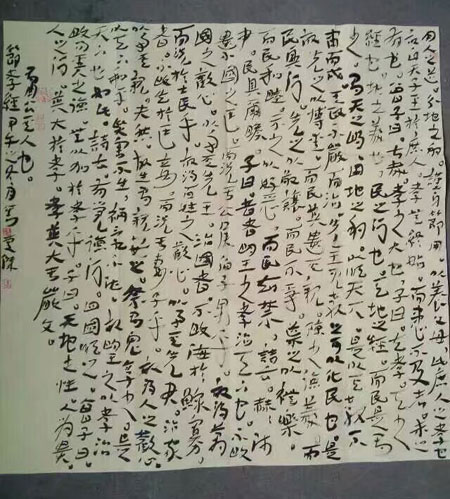 用人之道。分地之利。謹身節用。以養父母。此庶人之孝也
故自天子至於庶人。孝無終始。而患不及者。未之
有也。曾子曰。甚哉孝之大也。子曰。夫孝。天之
經也。地之義也。民之行也。天地之經。而民是則
之。則天之明。因地之利。以順天下。是以其教不
肅而成。其政不嚴而治。先王見教之可以化民也。是
故先之以博愛。而民莫遺其親。陳之以德義。而
民興行。先之以敬讓。而民不爭。導之以禮樂。
而民和睦。示之以好惡。而民知禁。詩云。赫赫師
尹。民具爾瞻。子曰昔者明王之以孝治天下也。不敢
遺小國之臣。而況於公侯伯子男乎。故得萬
國之歡心。以事其先王。治國者。不敢侮於鰥寡。
而況於士民乎。故得百姓之歡心。以事其先君。治家
者。不敢失於臣妾。而況於妻子乎。故得人之歡心。
以事其親。夫然。故生則親安之。祭則鬼享之。是
以天下和平。災害不生。禍亂不作。故明王之以孝治
天下也。如此。詩云。有覺德行。四國順之。曾子曰。
敢問聖人之德。無以加於孝乎。子曰。天地之性。人為貴。
人之行。莫大於孝。孝莫大於嚴父。
周公其人也。
節孝經甲午